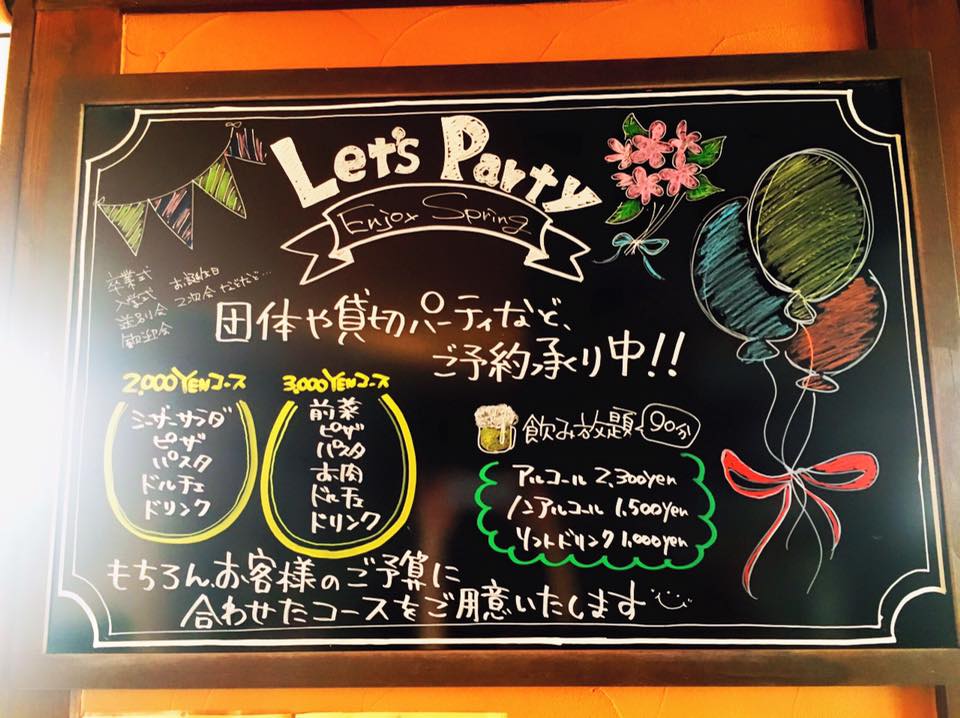 Let's Party
Enjoy Spring
卒業式
入学式
送別会
歓迎会
お誕生日
2次会などなど…
団体や貸切パーティなど、
ご予約承り中!!
2,000YENコース
シーザーサラダ
ピザ
パスタ
ドルチェ
ドリンク
3,000YENコース
前菜
ピザ
パスタ
お肉
ドルチェ
ドリンク
飲み放題 90分
アルコール 2,300yen
ノンアルコール 1,500yen
ソフトドリンク 1,000yen
もちろん、お客様のご予算に
合わせたコースをご用意いたします